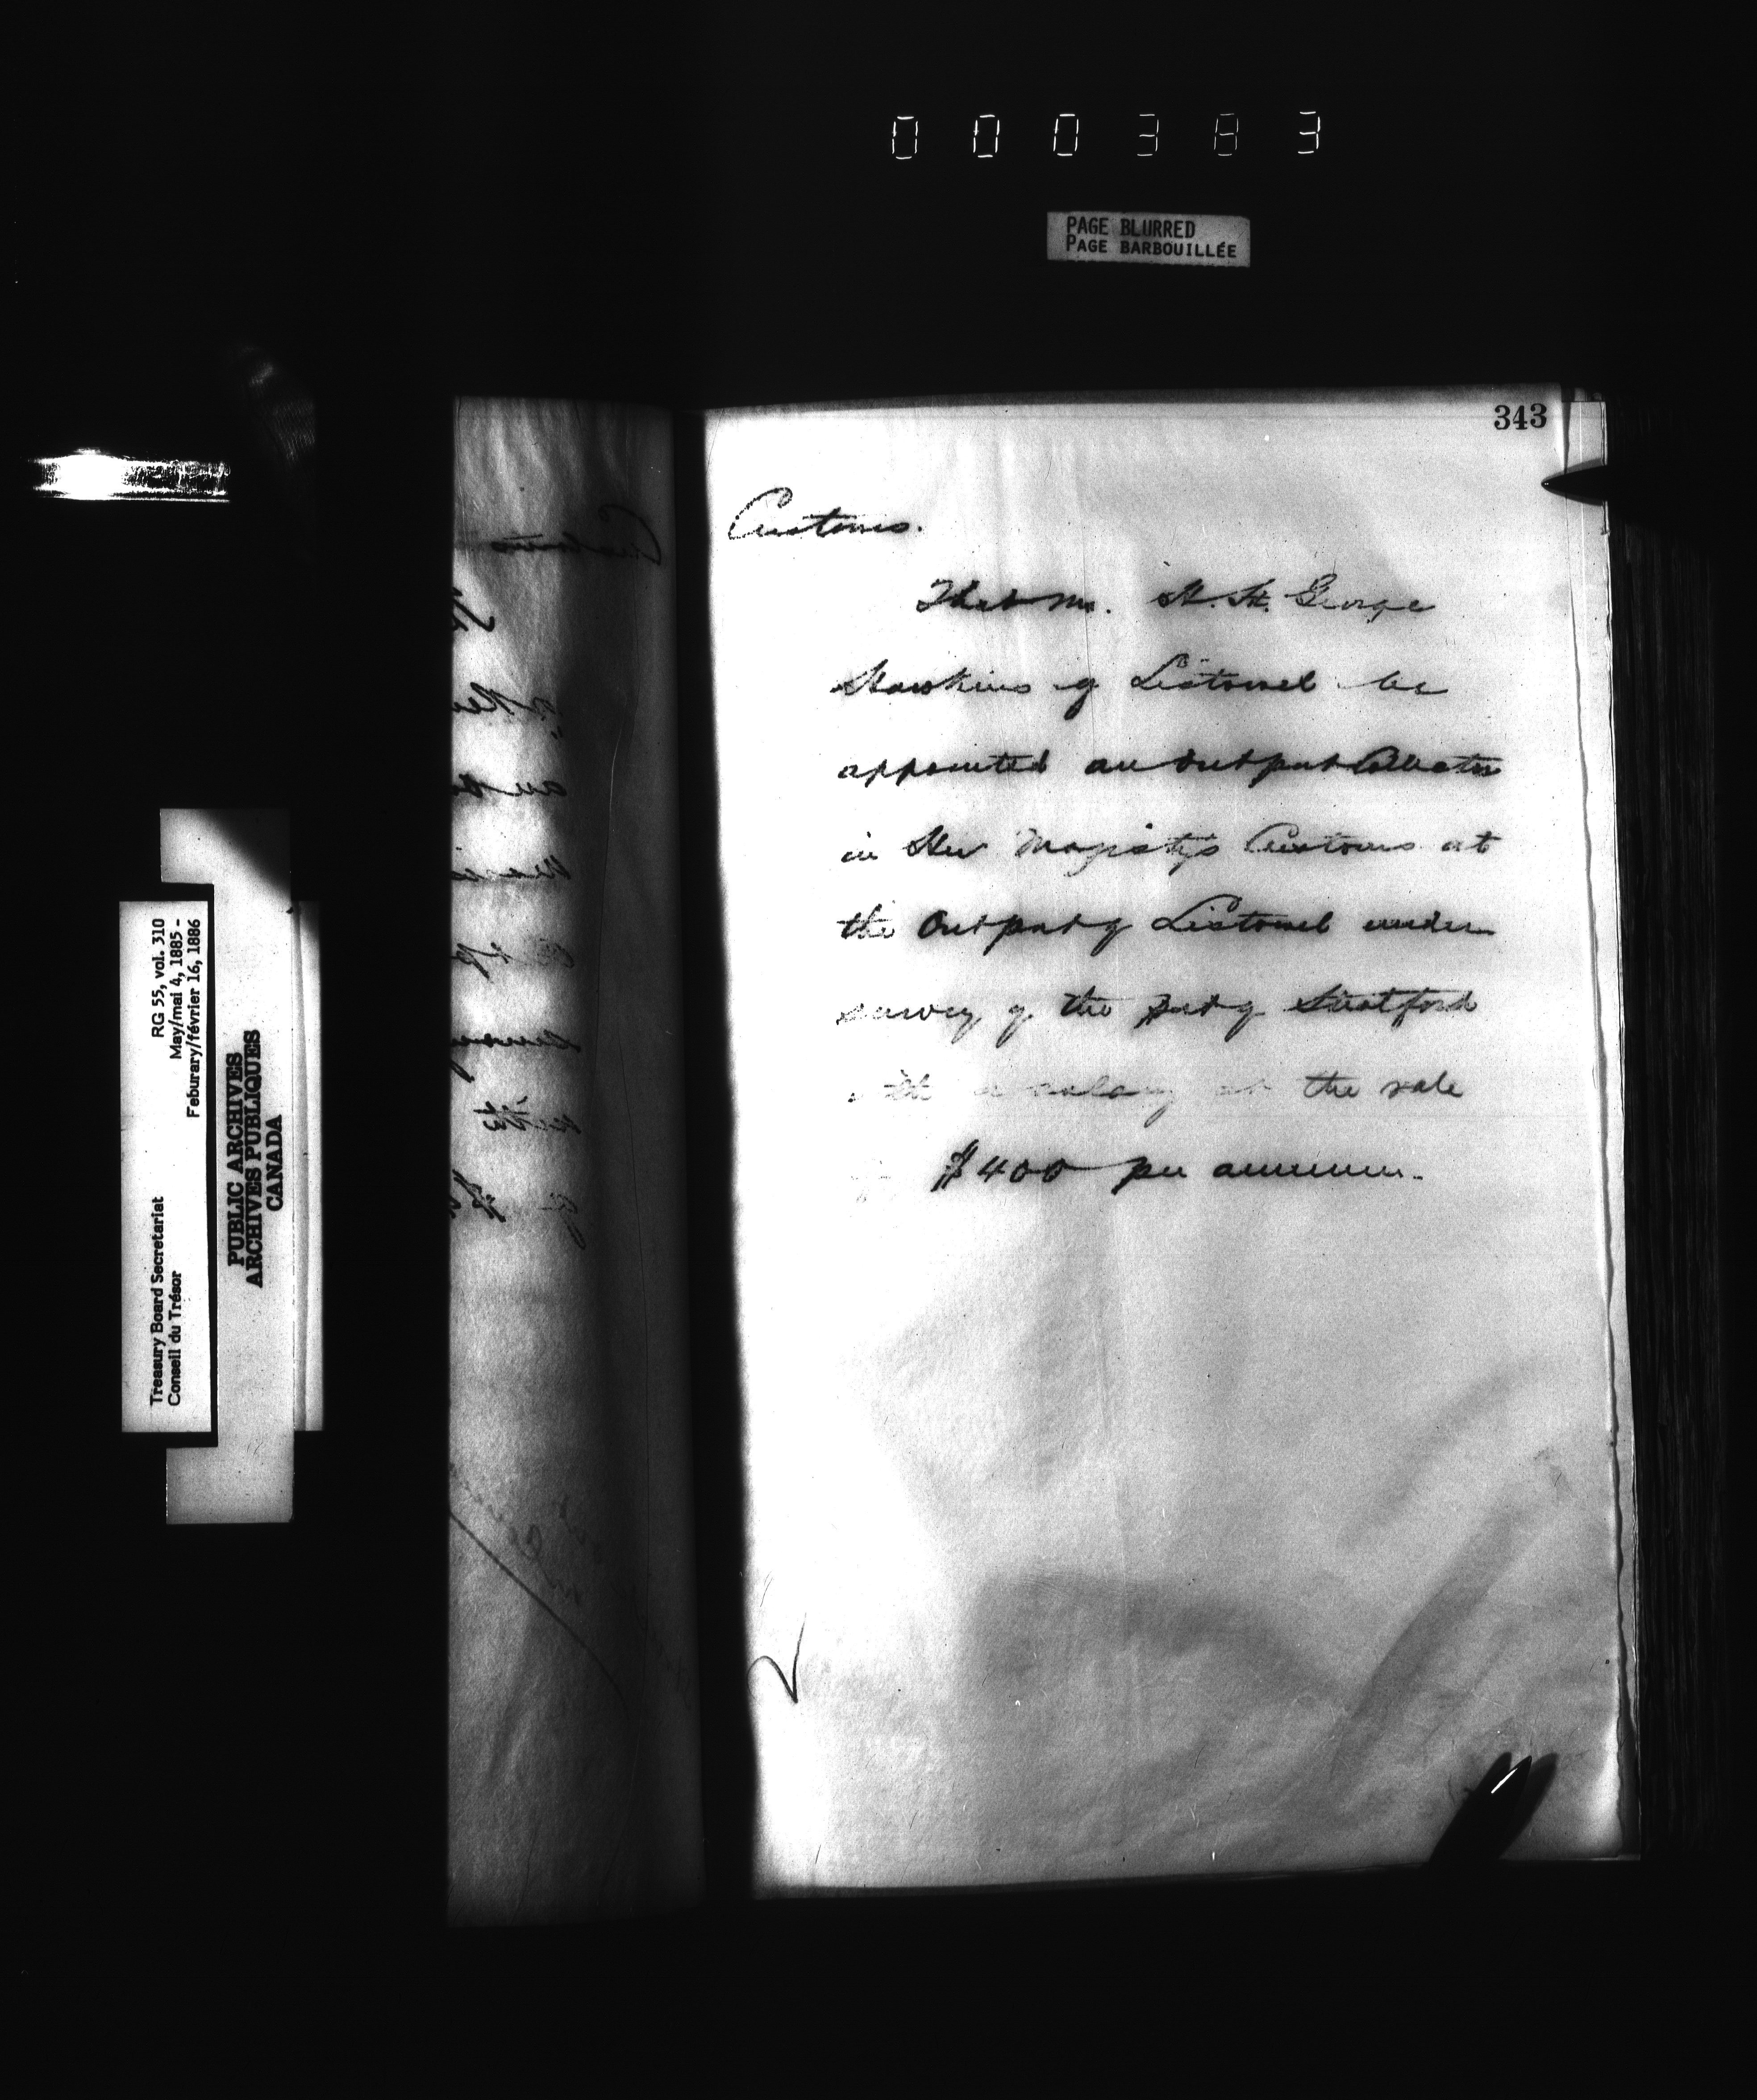 000383
PAGE BLURRED
PAGE BARBOUILLÉE
343
Customs.
That Mr. H. St. George
Hawkins of Listowel be
appointed an Outport Collector
in Her Majesty's Customs at
the Outport of Listowel under
survey of the Port of Stratford
with a salary at the rate
$400 per annum.
Treasury Board Secretariat RG 55, vol. 310
Conseil du Trésor May/mai 4, 1885 -
Feburary/février 16, 1886
PUBLIC ARCHIVES
ARCHIVES PUBLIQUES
CANADA